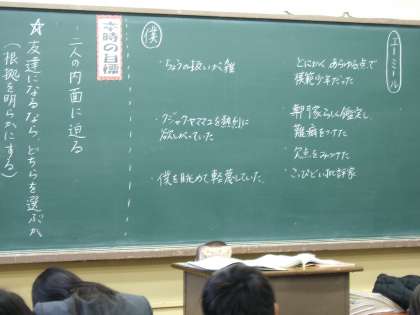 エーミール
・とにかくあらゆる点で
模範少年だった
・専門家らしく鑑定し、
難癖をつけた
・欠点をみつけた
・こっぴどい批評家
僕
・ちょうの扱いが雑
・クジャクヤママユを熱烈に
欲しがっていた
・僕を眺めて軽蔑していた。
本時の目標
・二人の内面に迫る
☆友達になるなら、どちらを選ぶか。
(根拠を明らかにする)